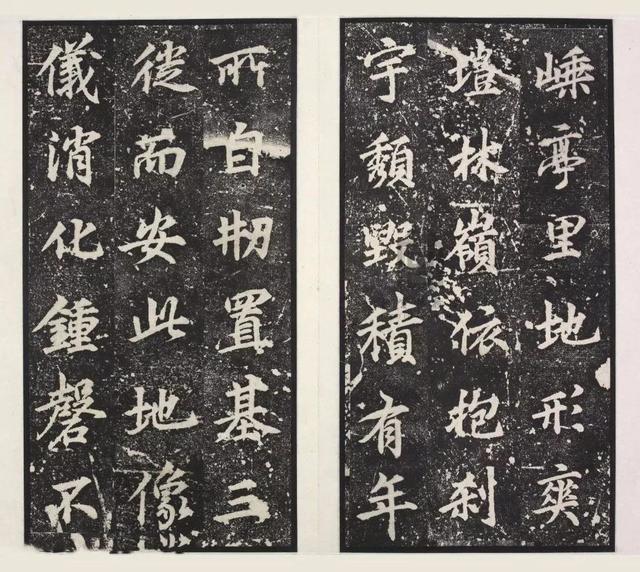 嵊亭里地形爽
塏林嶺依抱刹
宇頽毀積有年
所自刱置基三
徙而安此地像
儀消化鍾磬不